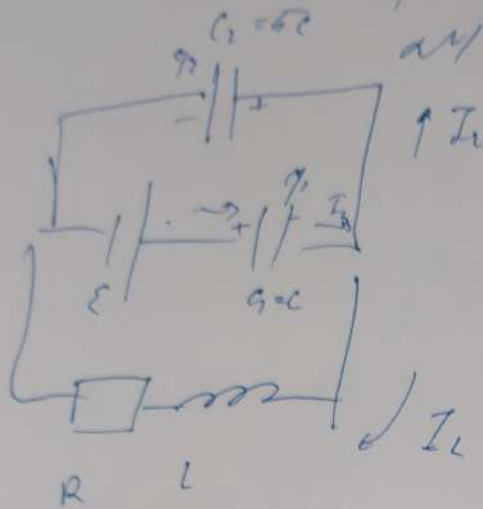 C₂ = 5C
q₂
- +
I₂
+ q₁ I₁
ε C₁=C
R L I_L